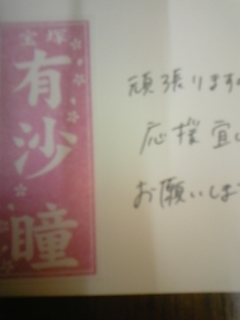 宝塚
有沙瞳
頑張ります
応援宜
お願いしま